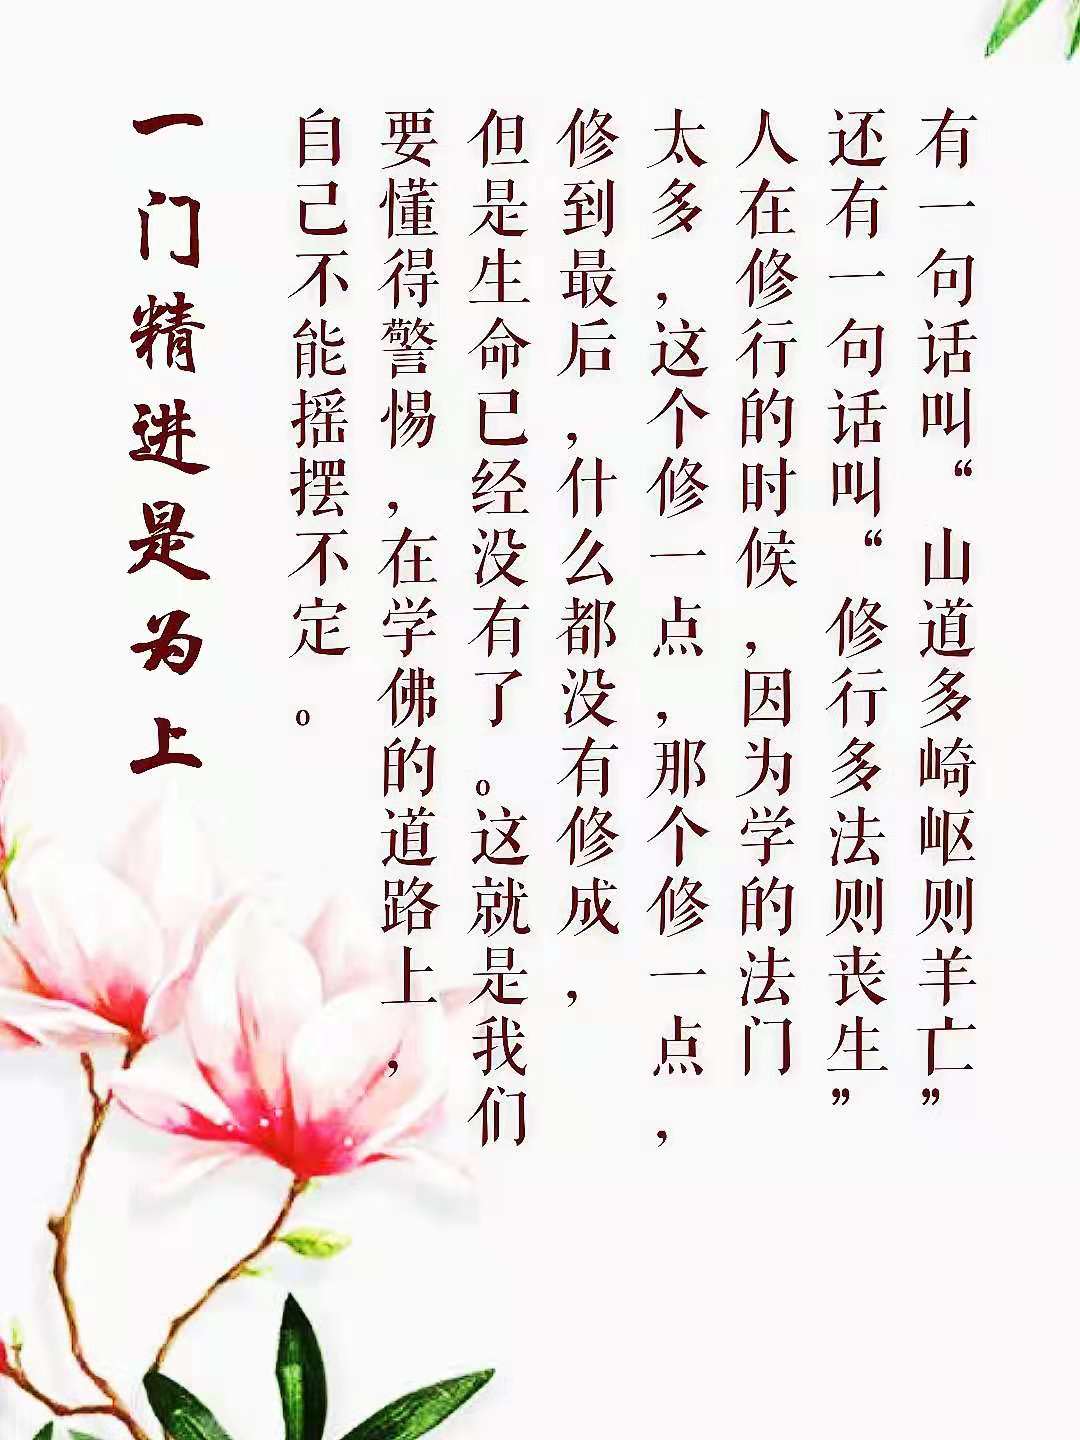 有一句话叫“山道多崎岖则羊亡”
还有一句话叫“修行多法则丧生”
人在修行的时候，因为学的法门
太多，这个修一点，那个修一点，
修到最后，什么都没有修成，
但是生命已经没有了。这就是我们
要懂得警惕，在学佛的道路上，
自己不能摇摆不定。
一门精进是为上